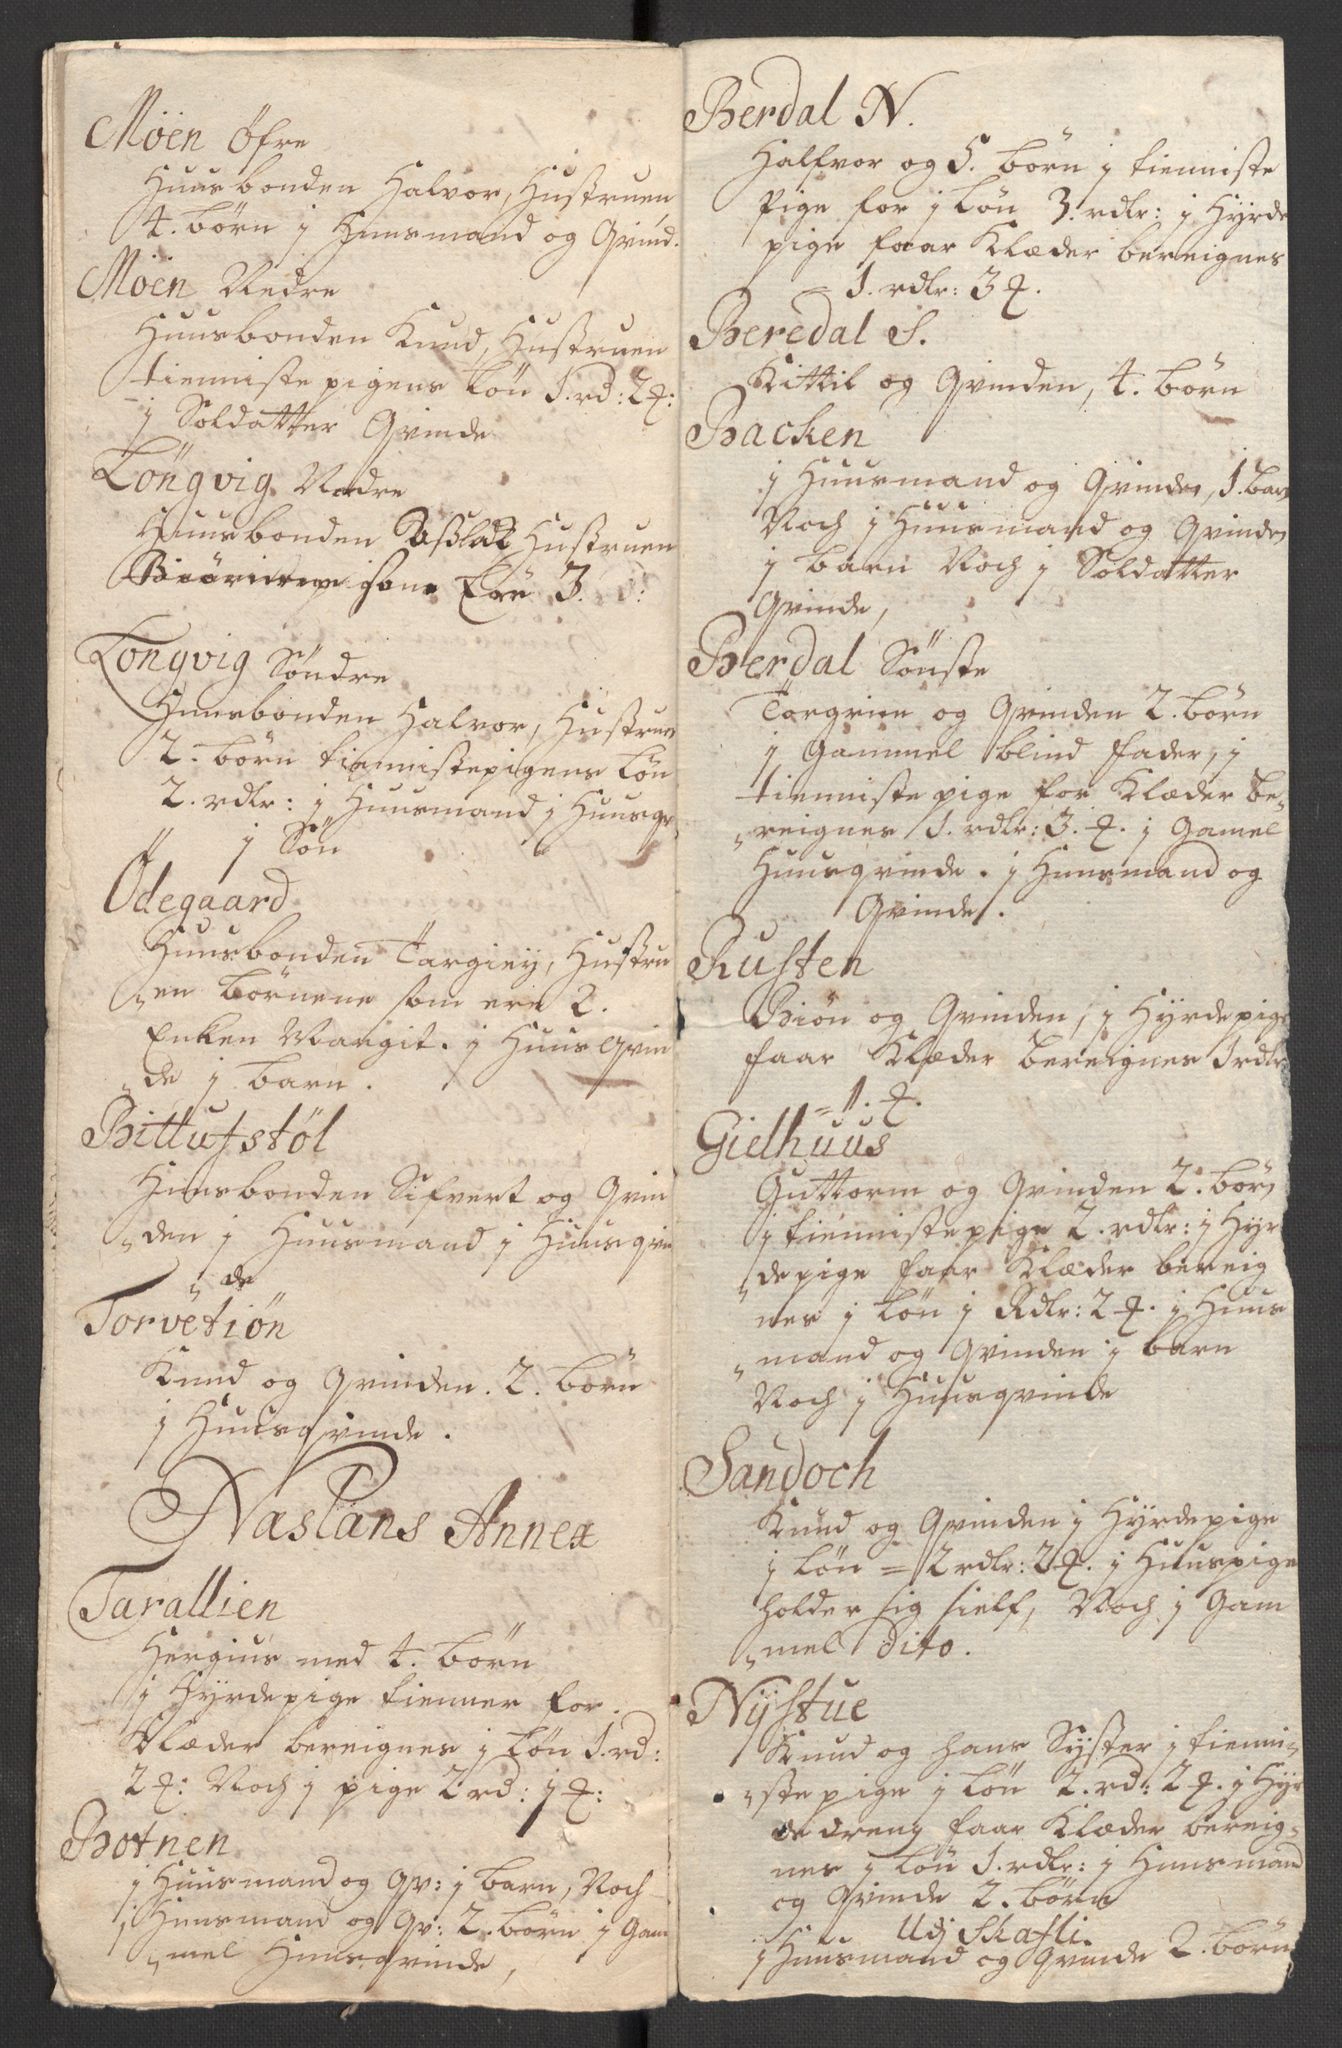 Moen Øfre
Huusbonden Halvor, Hustruen
4. börn j Huusmand og Qvind.
Moen Nedre
Huusbonden Knud, Hustruen
tienniste pigens Lön 1. rd: 2 #:
j Soldatter Qvinde
Löngvig Nedre
Huusbonden Aßlak Hustruen
3.
Longvig Söndre
Huusbonden Halvor, Hustruen
2. börn tiennistepigens Lön
2. rdlr: j Huusmand j Huusqv
j Sön
Ödegaard
Huusbonden Targiey, Hustru
en börnene som ere 2.
Enken Margit. j Huus Qvin
de j barn.
Bittufstöl
Huusbonden Sifvert og Qvin
den j Huusmand j Huusqvin
de
Torvetiön
Knud og Qvinden. 2. börn
j Huusqvinde.
Næslans Annex
Tarallien
Hergius med 4. börn
j Hyrdepige tienner for
Klæder bereignes j Lön 1. rd:
2 #: Noch j pige 2 rd: j #:
Botnen
j Huusmand og Qv: j barn, Noch
j Huusmand og Qv: 2. börn j Gam
mel Huusqvinde,
Berdal N.
Halfvor og 5. börn j tienniste
Pige for j Lön 3. rdlr: j Hyrde
pige faar Klæder bereignes
= 1. rdlr: 3 #.
Beredal S.
Kittil og Qvinden, 4. börn
Backen
j Huusmand og Qvinde, 1. barn
Noch j Huusmand og Qvinden
j barn Noch j Soldatter
Qvinde,
Berdal Sönste
Torgrim og Qvinden 2. börn
j Gammel blind fader, j
tienniste pige for Klæder be„
„reignes 1. rdlr: 3. #. j Gamel
Huusqvinde. j Huusmand og
Qvinde.
Rusten
Biön og Qvinden, j Hyrdepige
faar Klæder bereignes 1 rdlr
= 1. #.
Gielhuus
Guttorm og Qvinden 2. börn
j tiennistepige 2. rdlr: j Hyr
„depige faar Klæder bereig
nes j Lön j Rdlr: 2 #. j Huus
„mand og Qvinden j barn
Noch j Huusqvinde
Sandoch
Knud og Qvinden j Hyrdepige
j Lön = 2 rdlr: 2 #. j Huuspige
holder sig sielf, Noch j Gam
„mel dito.
Nystue
Knud og hans Syster j tienni„
„ste pige j Lön 2. rd: 2 #. j Hyr
de dreng faar Klæder bereig„
nes j Lön 1. rdlr: j Huusmand
og Qvinde 2. börn
Udj Skafti.
j Huusmand og Qvinde 2. börn